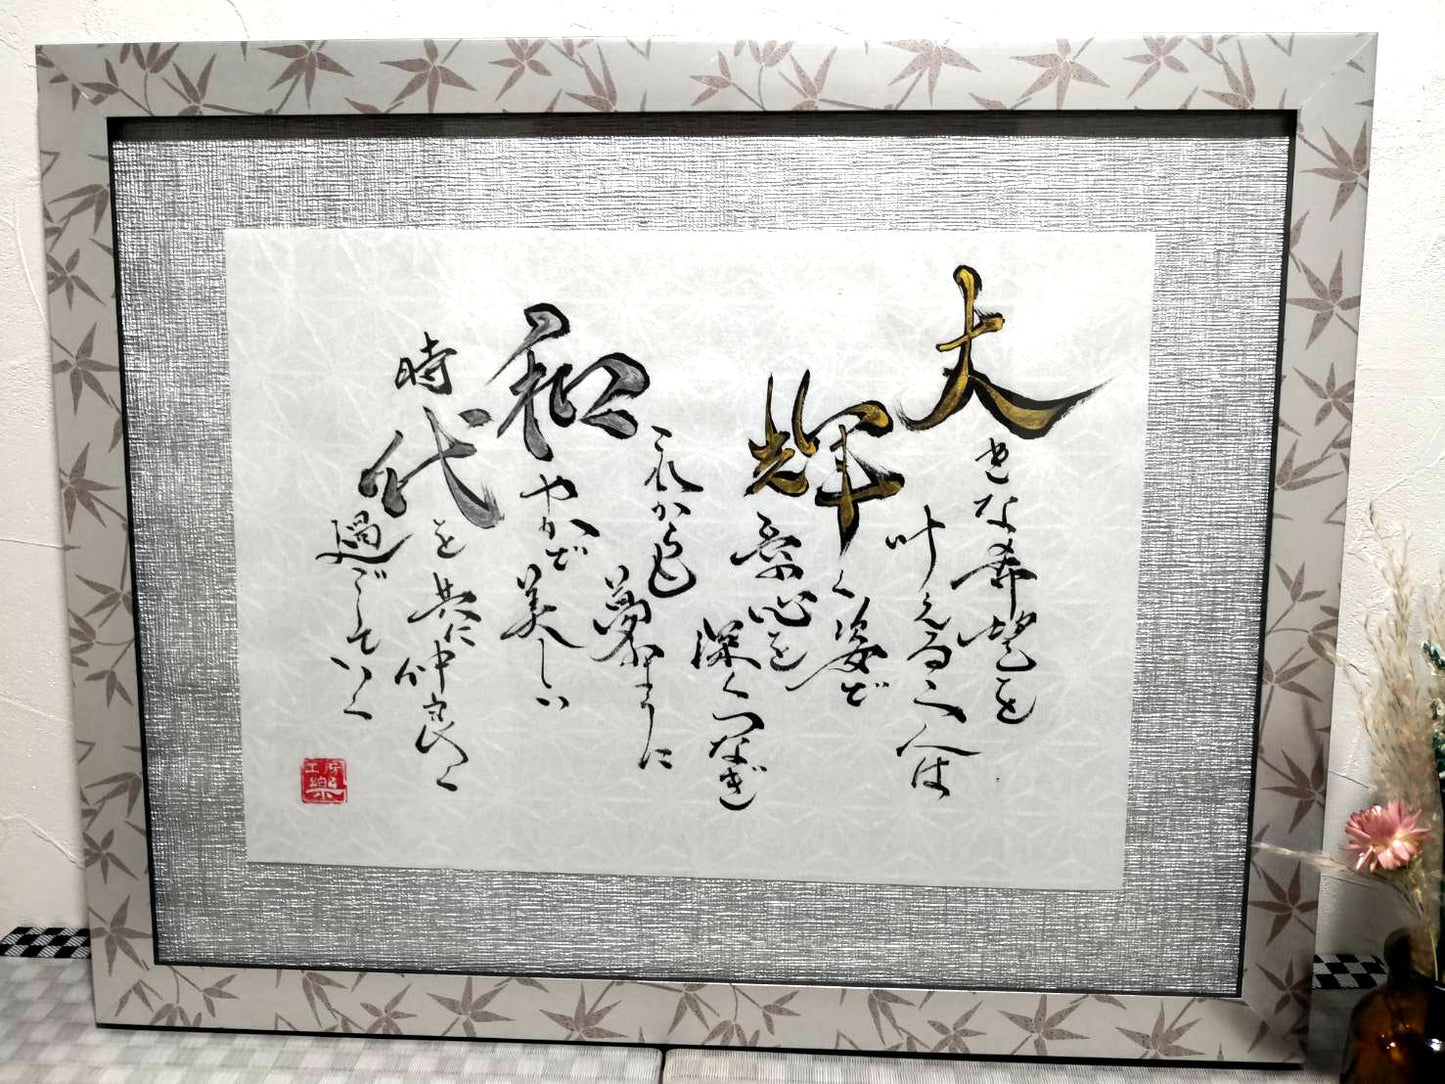 大きな希望を
叶える二人は
輝く姿で
心を
深くつなぎ
これからも
夢のように
和やかで美しい
時代を共に仲良く
過ごしていく
工房
樂